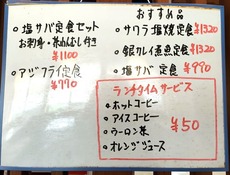 ・塩サバ定食セット
お刺身・茶わんむし付き
¥1100
・アジフライ定食
¥770
おすすめ品
・サワラ塩焼定食 ¥1320
・銀カレイ煮魚定食 ¥1320
・塩サバ定食 ¥990
ランチタイムサービス
・ホットコーヒー
・アイスコーヒー
・ウーロン茶
・オレンジジュース
¥50